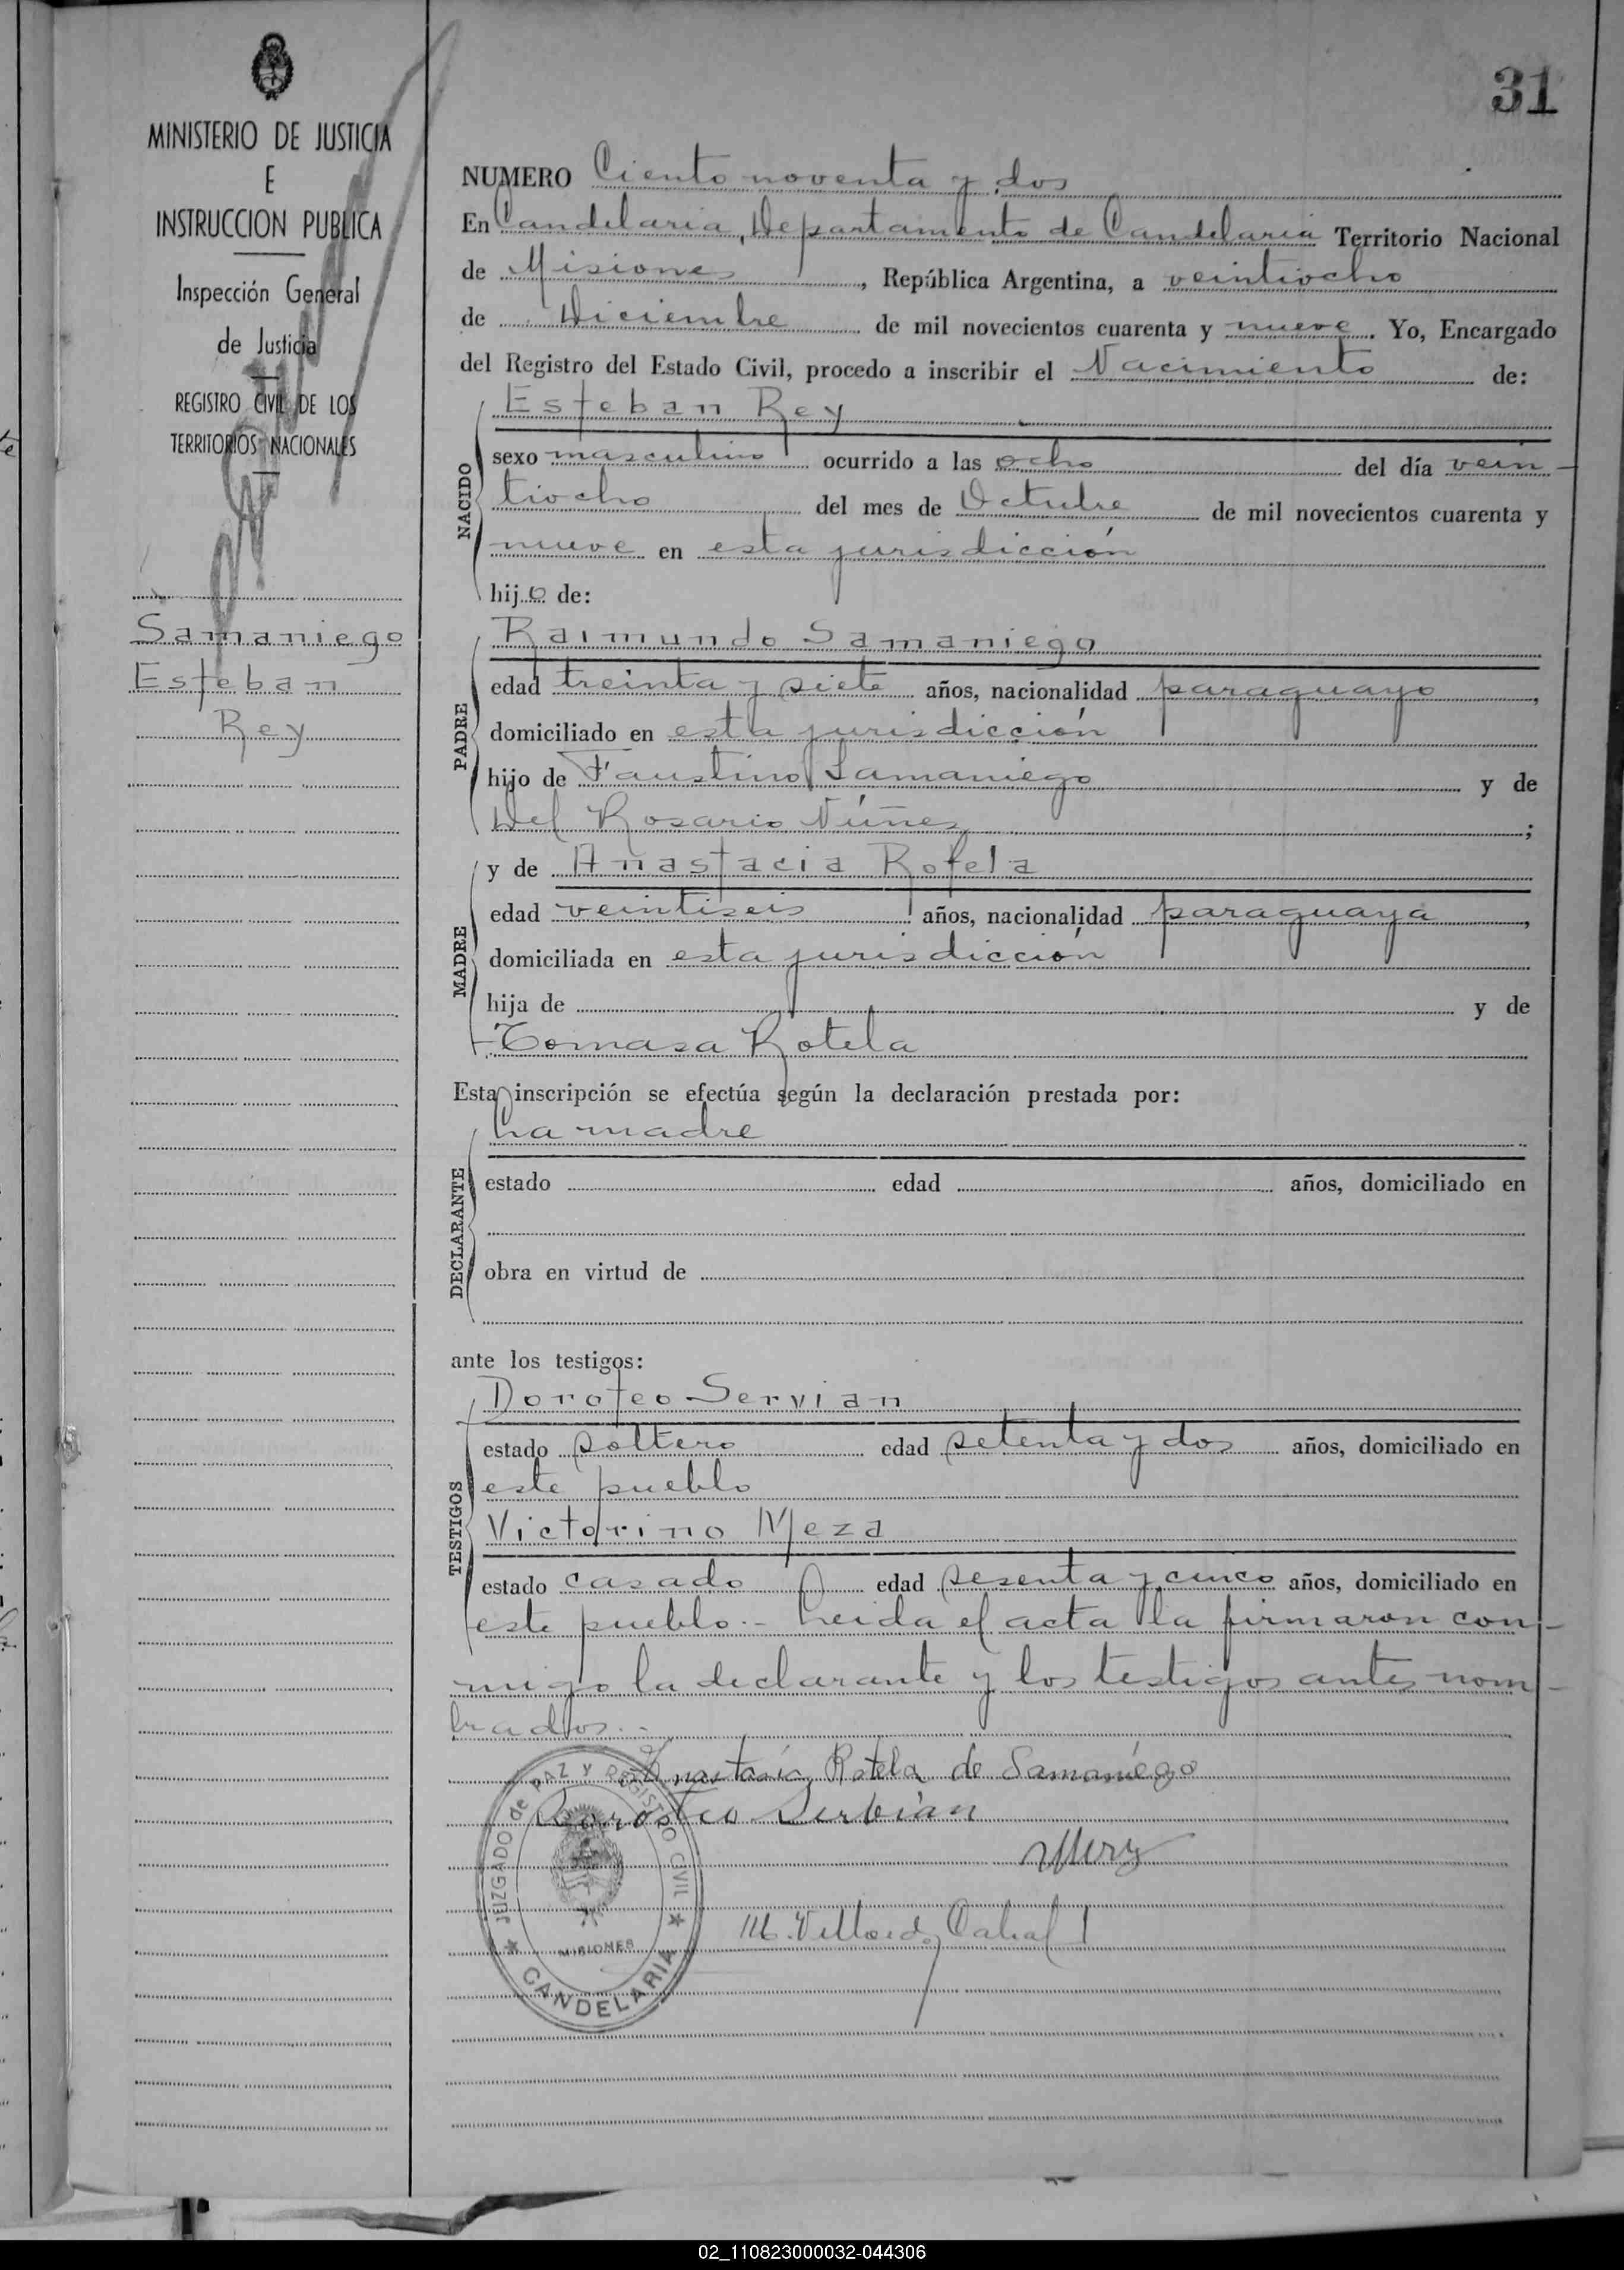 31
MINISTERIO DE JUSTICIA
E
INSTRUCCION PUBLICA
Inspección General
de Justicia
REGISTRO CIVIL DE LOS
TERRITORIOS NACIONALES
Samaniego
Esteban
Rey
NUMERO Ciento noventa y dos
En Candelaria, Departamento de Candelaria Territorio Nacional
de Misiones, República Argentina, a veintiocho
de Diciembre de mil novecientos cuarenta y nueve. Yo, Encargado
del Registro del Estado Civil, procedo a inscribir el Nacimiento de:
NACIDO
Esteban Rey
sexo masculino ocurrido a las ocho del día vein-
tiocho del mes de Octubre de mil novecientos cuarenta y
nueve en esta jurisdicción
hijo de:
PADRE
Raimundo Samaniego
edad treinta y siete años, nacionalidad paraguayo,
domiciliado en esta jurisdicción
hijo de Faustino Samaniego y de
Del Rosario Núñez;
MADRE
y de Anastacia Rotela
edad veintiseis años, nacionalidad paraguaya,
domiciliada en esta jurisdicción
hija de y de
Tomasa Rotela
Esta inscripción se efectúa según la declaración prestada por:
DECLARANTE
La madre
estado edad años, domiciliado en
obra en virtud de
ante los testigos:
TESTIGOS
Doroteo Servian
estado soltero edad setenta y dos años, domiciliado en
este pueblo
Victorino Meza
estado casado edad sesenta y cinco años, domiciliado en
este pueblo.- Leida el acta la firmaron con-
migo la declarante y los testigos antes nom-
brados.-
Anastasia Rotela de Samaniégo
Doroteo Serbian
JUZGADO de PAZ Y REGISTRO CIVIL
MISIONES
CANDELARIA
02_110823000032-044306